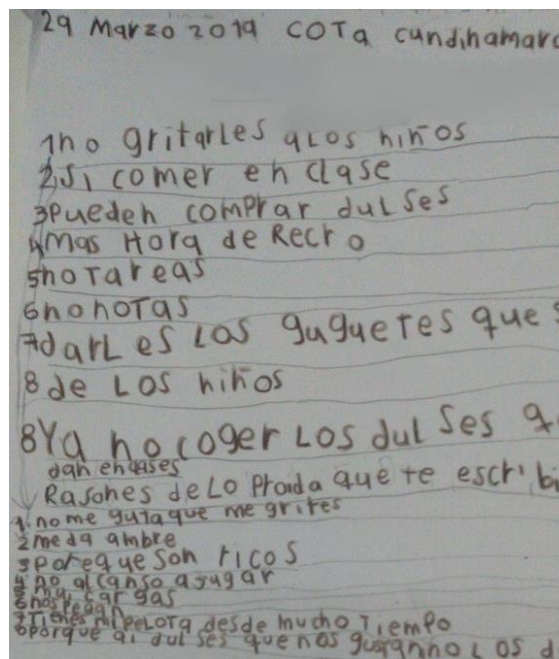 29 Marzo 2019 COTa cundinamarc
1no gritarles aLos niños
2Si comer en clase
3Pueden comprar dulses
4Mas Hora de Recro
5noTareas
6nonoTas
7darLes Los gugueTes que s
8 de Los niños
8Ya no coger Los dulses q
dan enclases
Rasones de Lo Proida que te escrib
1.nome guta que me grites
2meda ambre
3poreque son ricos
4no alcanso a jugar
5mui cargas
6nospegan
7Tienes mi peLoTa desde mucho Tiempo
8porque ai dulses que nos gustan no Los d